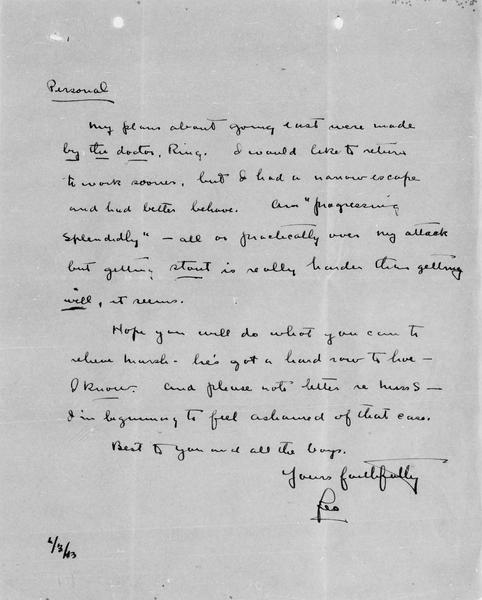 Personal
My plans about going east were made
by the doctor, Ring. I would like to return
to work sooner, but I had a narrow escape
and had better behave. Am "progressing
splendidly" – all or practically over my attack
but getting stout is really harder than getting
well, it seems.
Hope you will do what you can to
relieve Marsh – he's got a hard row to hoe –
I know. And please note letter re Mass S –
I'm beginning to feel ashamed of that case.
Best to you and all the boys.
Yours faithfully
Leo